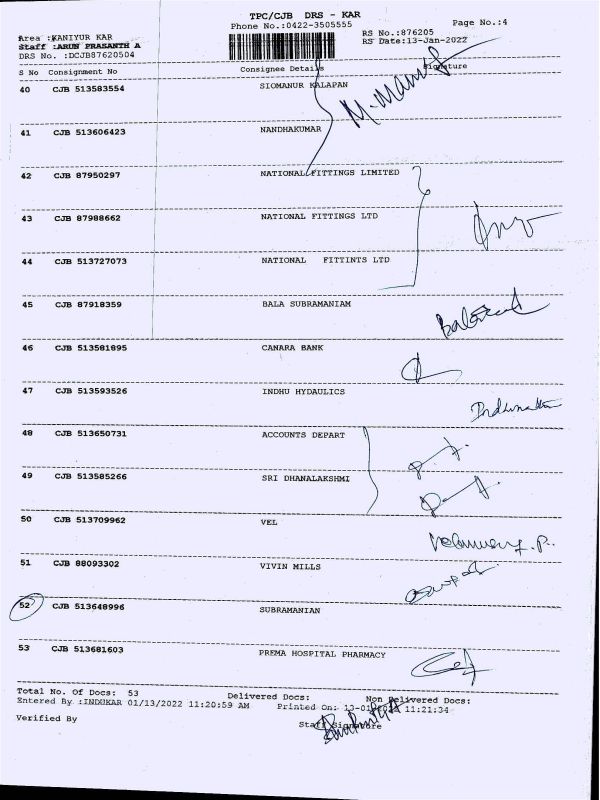 TPC/CJB DRS - KAR
Phone No.:0422-3505555
Page No.:4
Area :KANIYUR KAR
RS No.:876205
Staff :ARUN PRASANTH A
RS Date:13-Jan-2022
DRS No. :DCJB87620504
S No Consignment No Consignee Details Signature
40 CJB 513583554 SIOMANUR KALAPAN
41 CJB 513606423 NANDHAKUMAR
42 CJB 87950297 NATIONAL FITTINGS LIMITED
43 CJB 87988662 NATIONAL FITTINGS LTD
44 CJB 513727073 NATIONAL FITTINTS LTD
45 CJB 87918359 BALA SUBRAMANIAM
46 CJB 513581895 CANARA BANK
47 CJB 513593526 INDHU HYDAULICS
48 CJB 513650731 ACCOUNTS DEPART
49 CJB 513585266 SRI DHANALAKSHMI
50 CJB 513709962 VEL
51 CJB 88093302 VIVIN MILLS
52 CJB 513648996 SUBRAMANIAN
53 CJB 513681603 PREMA HOSPITAL PHARMACY
Total No. Of Docs: 53 Delivered Docs: Non Delivered Docs:
Entered By :INDUKAR 01/13/2022 11:20:59 AM Printed On: 13-01-2022 11:21:34
Verified By Staff Signature